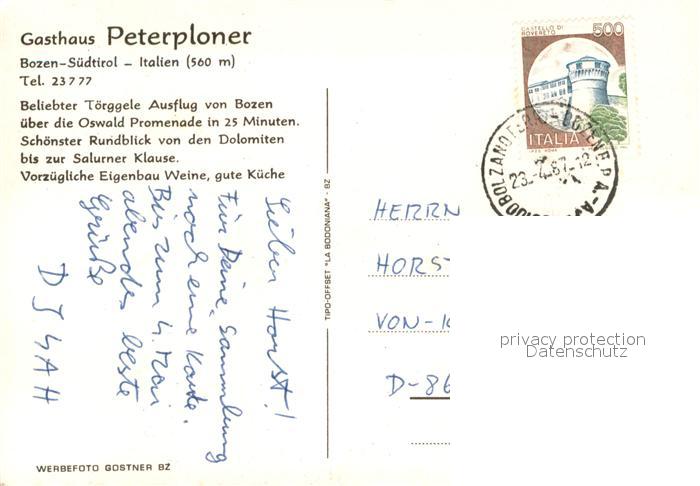 Gasthaus Peterploner
Bozen–Südtirol – Italien (560 m)
Tel. 23777
Beliebter Törggele Ausflug von Bozen
über die Oswald Promenade in 25 Minuten.
Schönster Rundblick von den Dolomiten
bis zur Salurner Klause.
Vorzügliche Eigenbau Weine, gute Küche
Lieber Horst!
Für Deine Sammlung
noch eine Karte.
Bis zum 4. Mai
abends beste
Grüße
WERBEFOTO GOSTNER BZ
TIPO-OFFSET "LA BODONIANA" - BZ
CASTELLO DI
ROVERETO
500
ITALIA
23.-4.87.-12
HERRN
HORS
VON-
D-86
privacy protection
Datenschutz